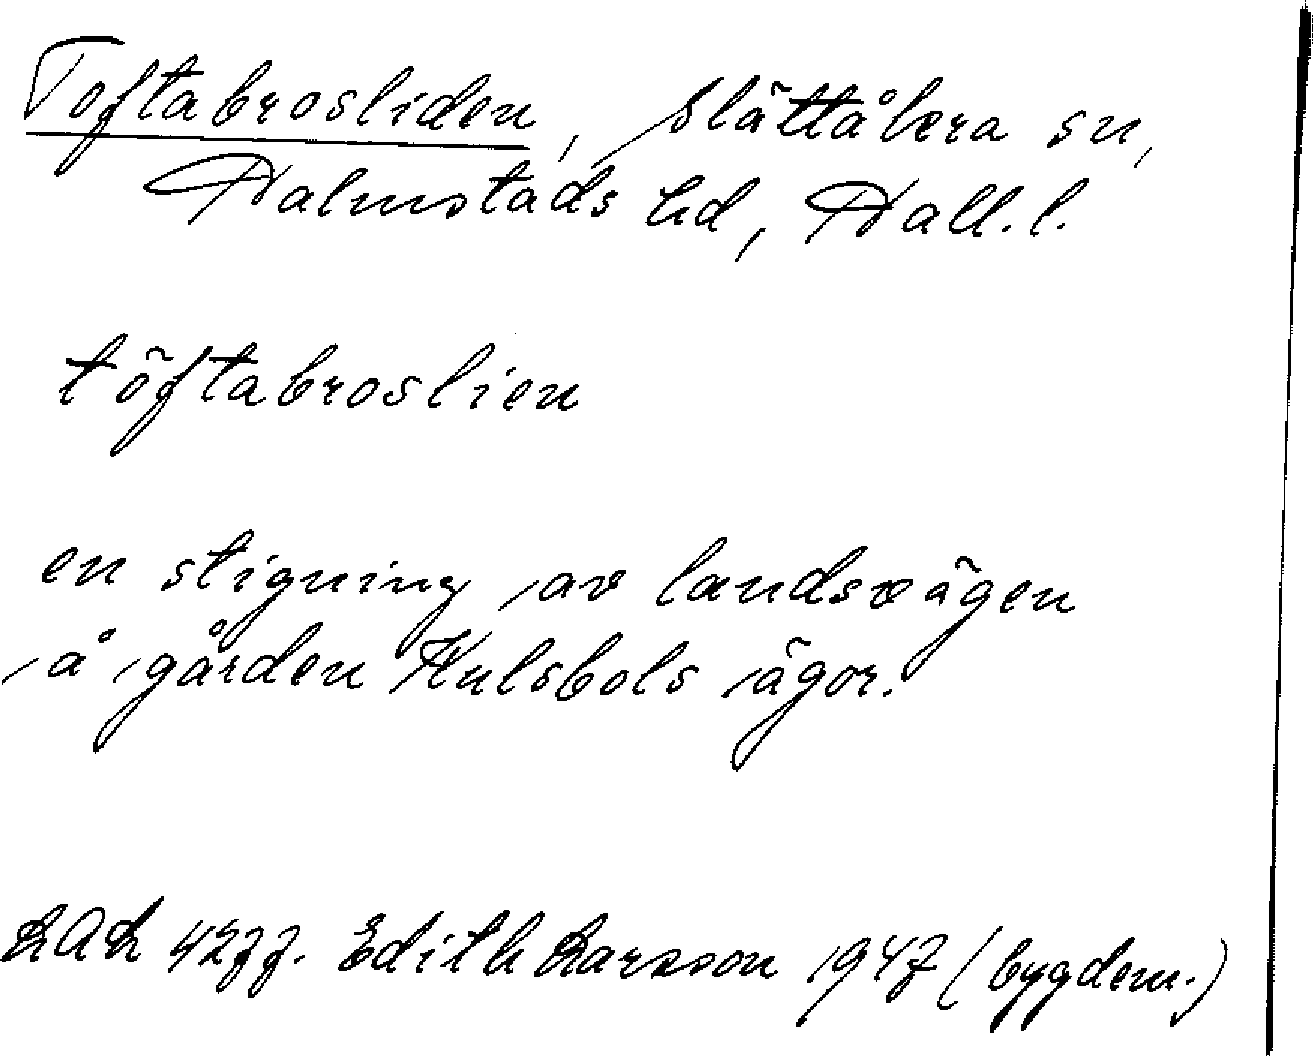 Toftabrosliden, Slättåkra sn,
Halmstads hd, Hall. l.
töftabroslien
en stigning av landsvägen
å gården Kulsbols ägor.
LAL 4277. Edith Larsson 1947 (bygdem.)